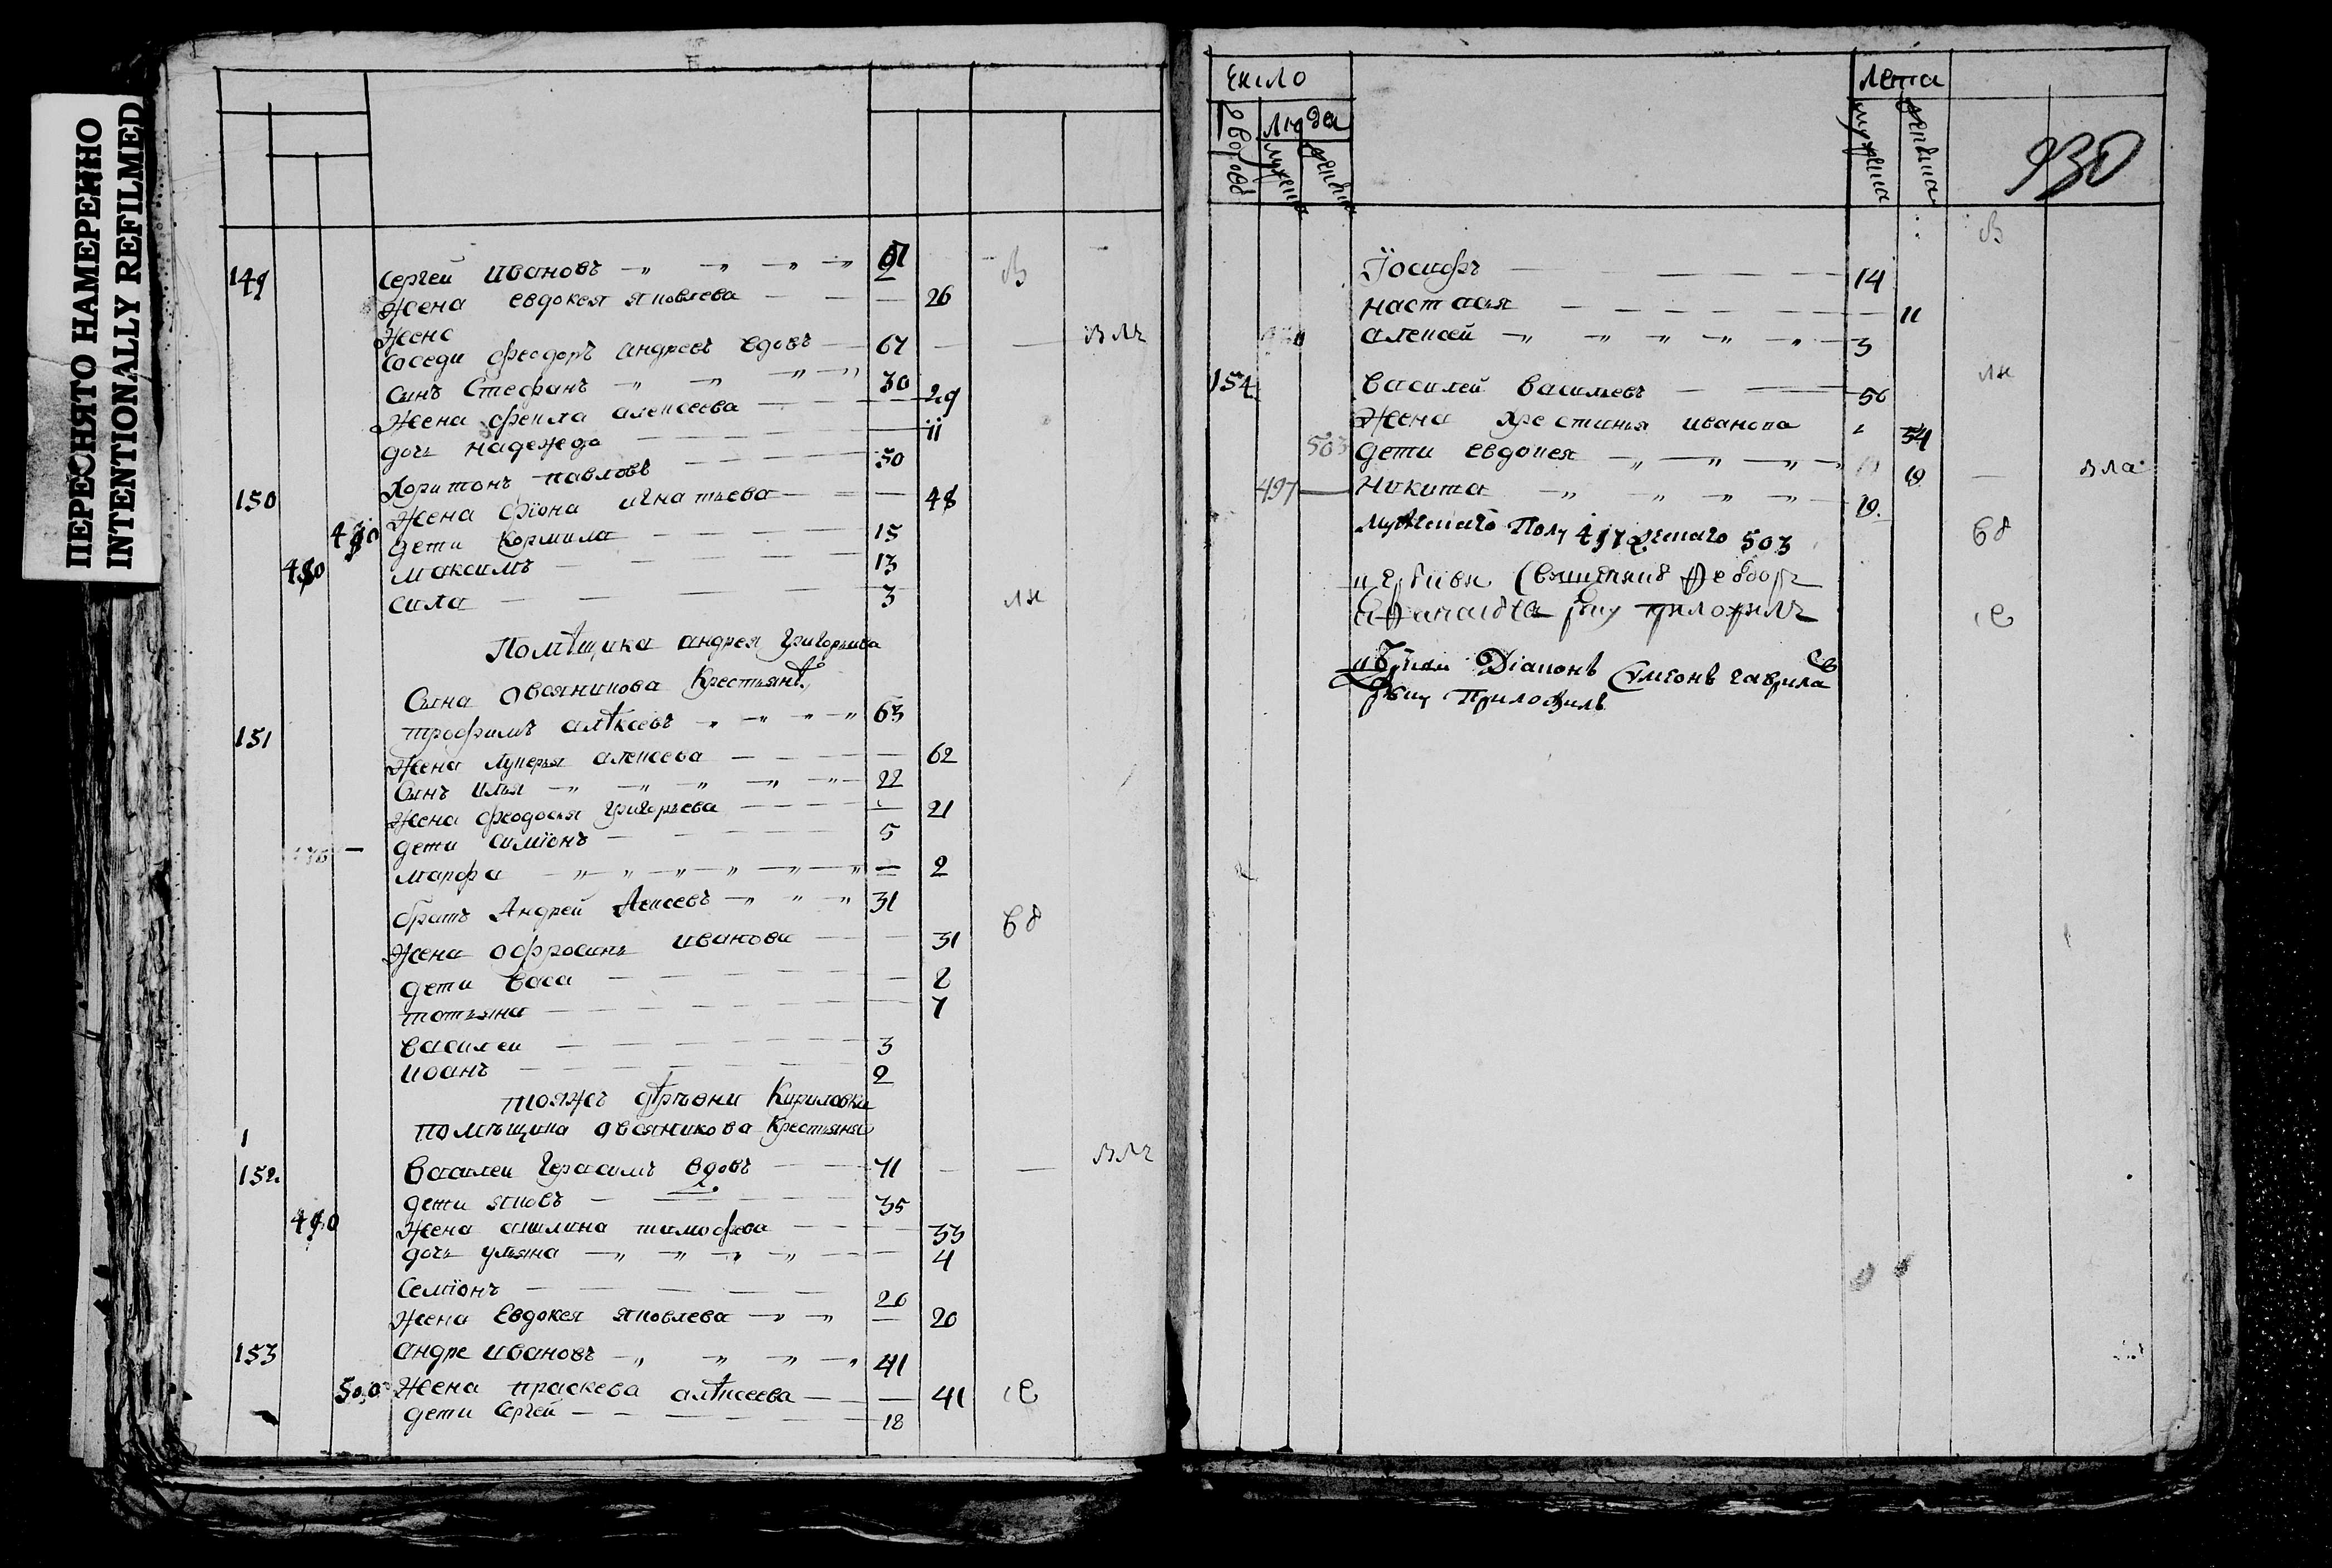 ПЕРЕСНЯТО НАМЕРЕННО
INTENTIONALLY REFILMED
149 Сергей Ивановъ
Жена евдокея яковлева 26
Жена
Соседи феодоръ андреевъ вдовъ 67
Синъ Стефанъ 30
Жена фекла алексеева 29
дочь надежда 11
150 Харитонъ павловъ 50
Жена фіона игнатьева 48
дети Кормила 15
480 максимъ 13
Сила 3
Помѣщика андрея Григорьива
Сина Овсяникова Крестьянѣ
151 трофимъ алѣксевъ 63
Жена лукерья алексеева 62
Синъ илья 22
Жена феодосия Григорьева 21
дети Симіонъ 5
марфа 2
братъ Андрей Алексевъ 31
Жена Офросинь иванова 31
дети Васа 2
татьяна 7
василеи 3
иоанъ 2
тояжъ дѣрѣвни Кириловки
помѣщика овсяникова Крестьяне
152 Василеи Герасимъ вдовъ 71
дети яковъ 35
490 Жена акилина тимофева 33
дочь ульяна 4
Семіонъ 26
Жена Евдокея яковлева 20
153 андре ивановъ 41
500 Жена праскева алѣксеева 41
дети Сергей 18
Число Лета
дворовъ людей мужеска женска мужеска женска
930
Іосифъ 14
настася 11
алексей 3
154 василей Васильевъ 56
Жена Хрестинья иванова 54
503 дети евдокея 19
497 Никита 19
мужескаго Полу 497 женскаго 503
руку приложилъ
Гаврила
руку Приложилъ